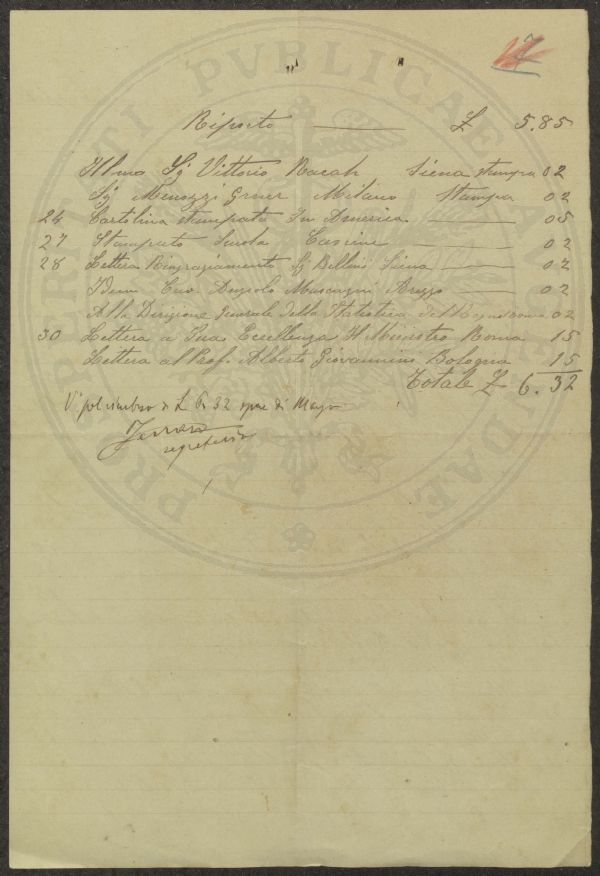 7
Riporto — £ 5.85
Ill mo Sg Vittorio Racah Siena stampa 02
Sg Menozzi Milano Stampa 02
24 Cartolina stampata In America — 05
27 Stampato Scuola Cascine — 02
28 Lettera Ringraziamento Sg Bellini Siena — 02
Idem Cav. Angiolo Mascagni Arezzo — 02
Alla Direzione Generale della Statistica del Regno Roma 02
30 Lettera a Sua Eccellenza Il Ministro Roma 15
Lettera al Prof. Alberto Giovannini Bologna 15
Totale £ 6.32
V° pel rimborso di £ 6.32 spese di Maggio
segretario
PROSPERITATI PVBLICAE